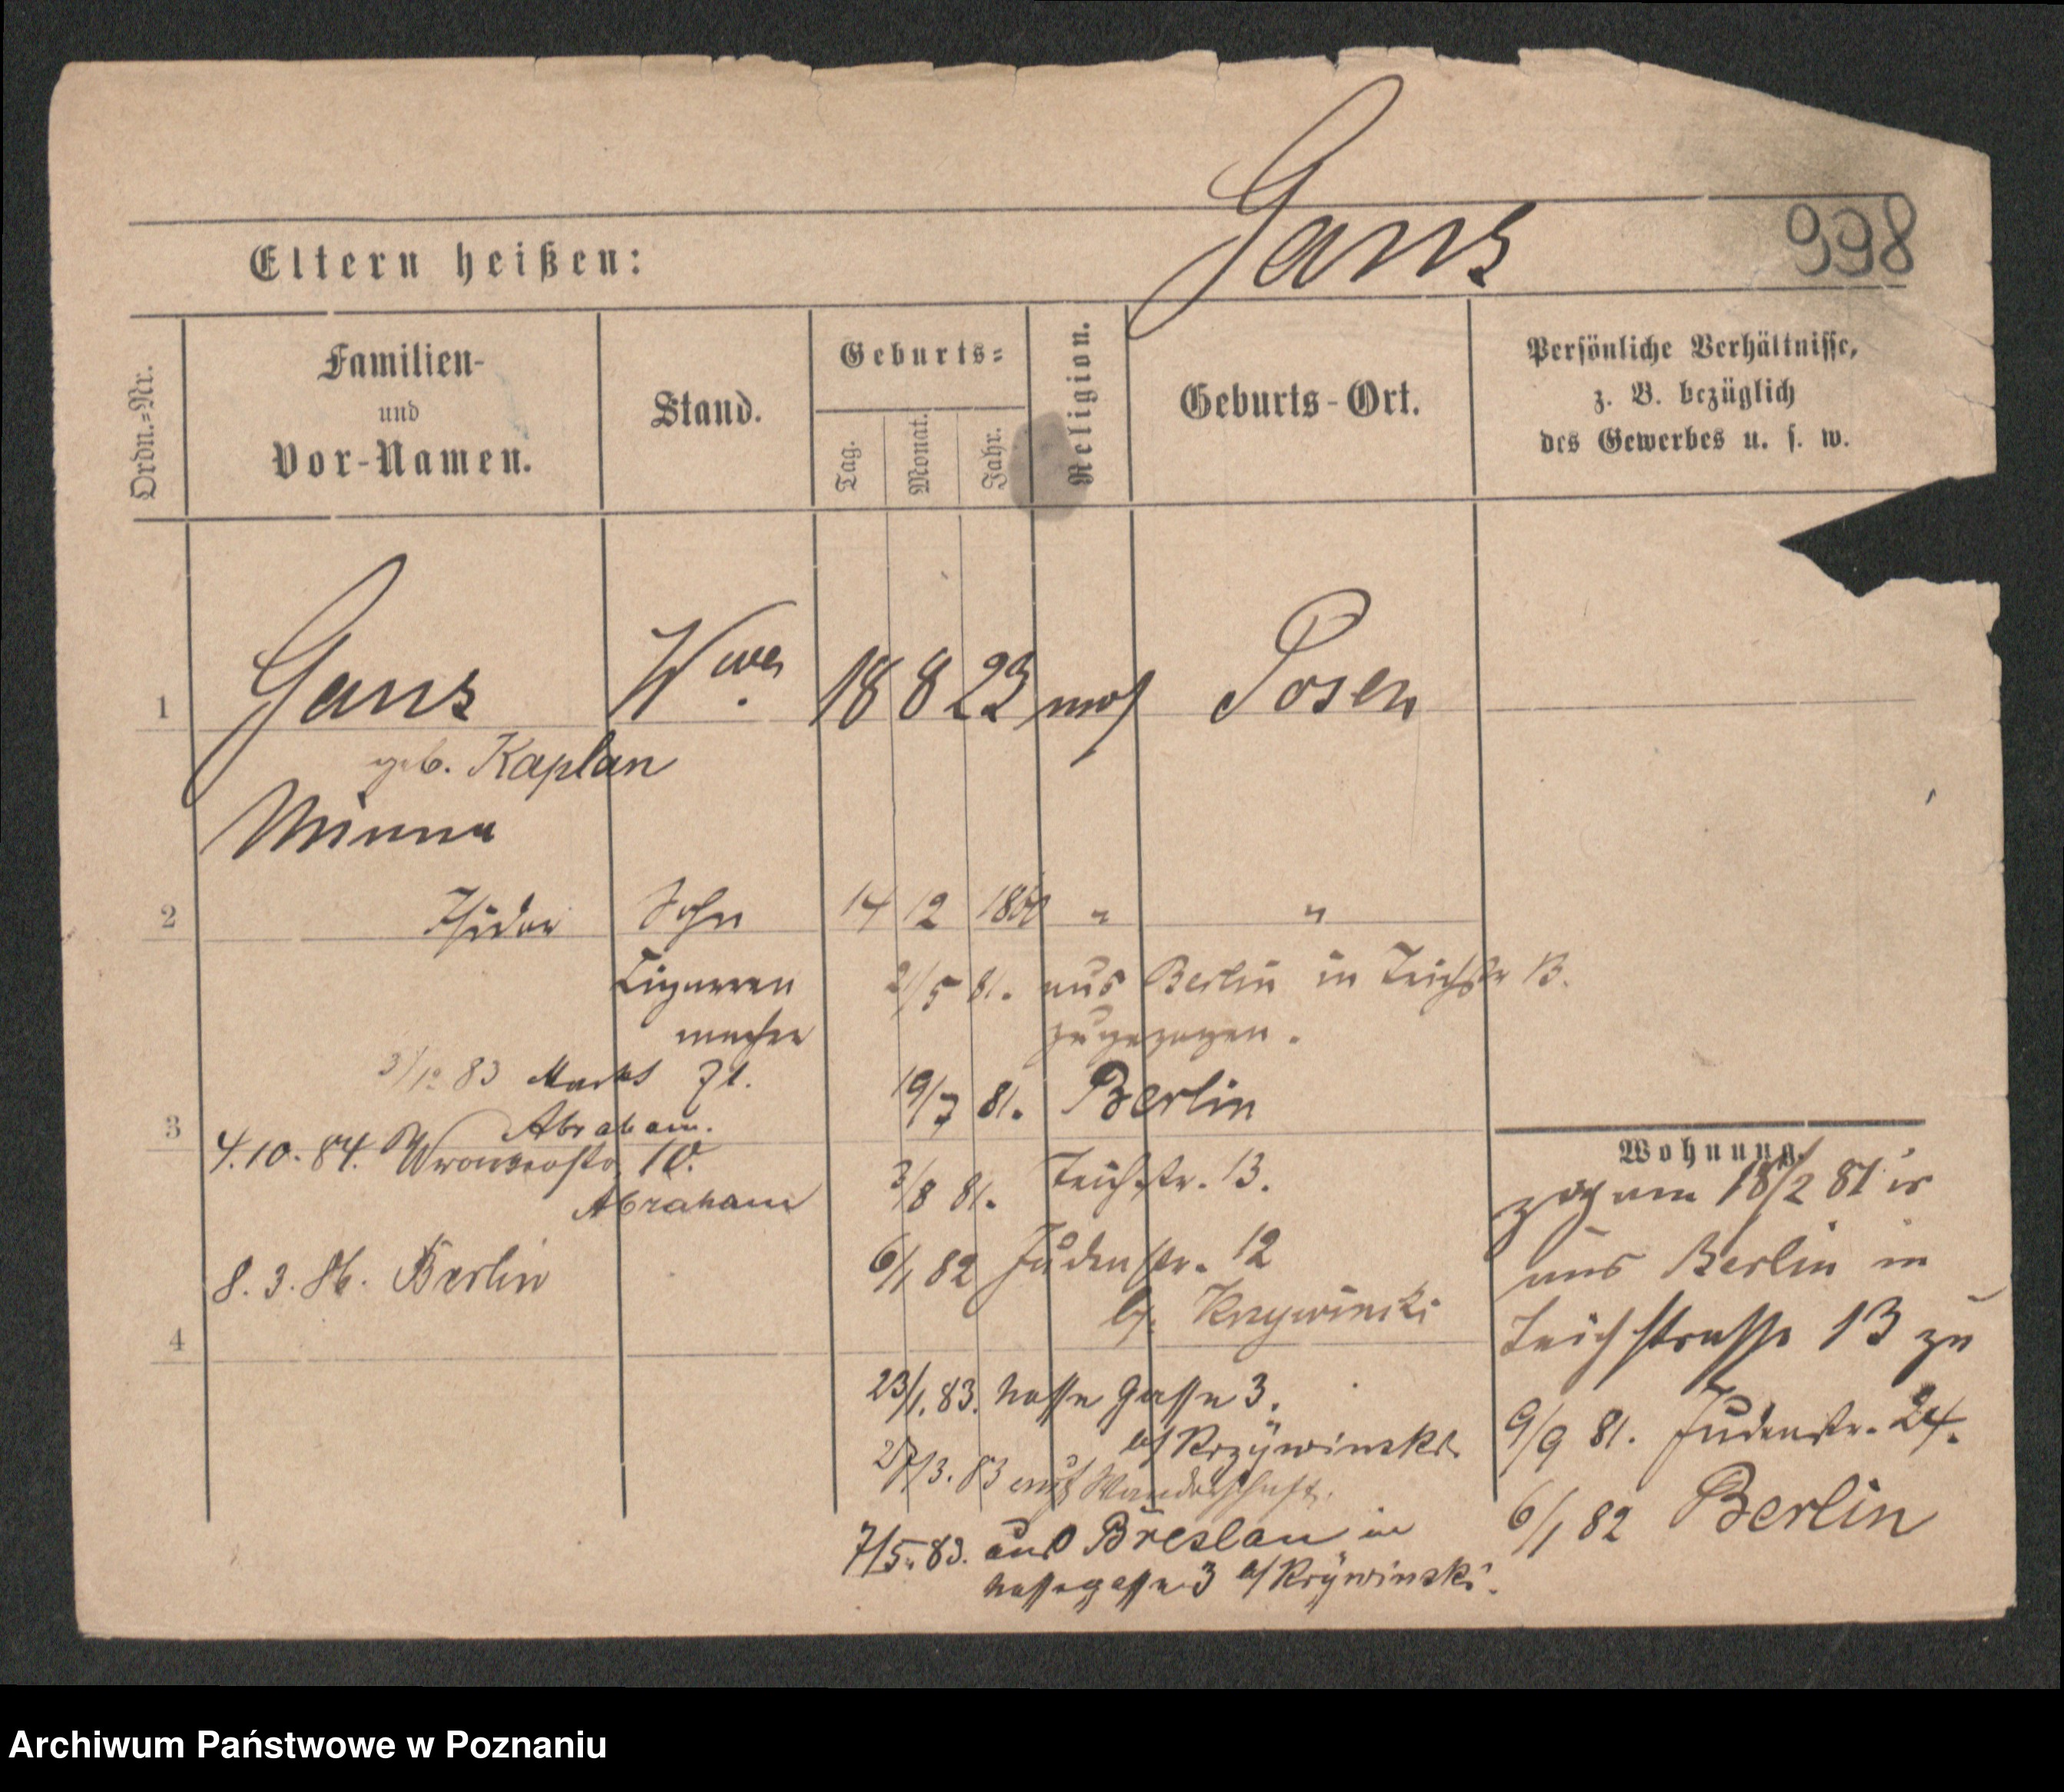 Gans
998
Eltern heißen:
Ordn.=Nr.
Familien-
und
Vor-Namen.
Stand.
Geburts=
Tag.
Monat.
Jahr.
Religion.
Geburts-Ort.
Persönliche Verhältnisse,
z. B. bezüglich
des Gewerbes u. s. w.
1 Gans Wwe. 18 8 23 mos Posen
geb. Kaplan
Minna
2 Isidor Sohn 14 12 " "
Cigarren
macher
21/5 81. aus Berlin in Teichstr 13.
zugezogen.
83 Markt 71.
Abraham.
19/7 81. Berlin
3
4.10.84. 10.
Abraham
3/8 81. Teichstr. 13.
8.3.86. Berlin
6/1 82 Judenstr. 12
bei Krzywinski
4
23/1.83. nasse Gasse 3.
b/ Krzywinski.
27/3.83 auf Wanderschaft.
7/5.83. aus Breslau in
nassegasse 3 b/ Krywinski.
Wohnung.
zog am 18/2 81
aus Berlin in
Teichstrasse 13 zu
9/9 81. Judenstr. 24.
6/1 82 Berlin
Archiwum Państwowe w Poznaniu